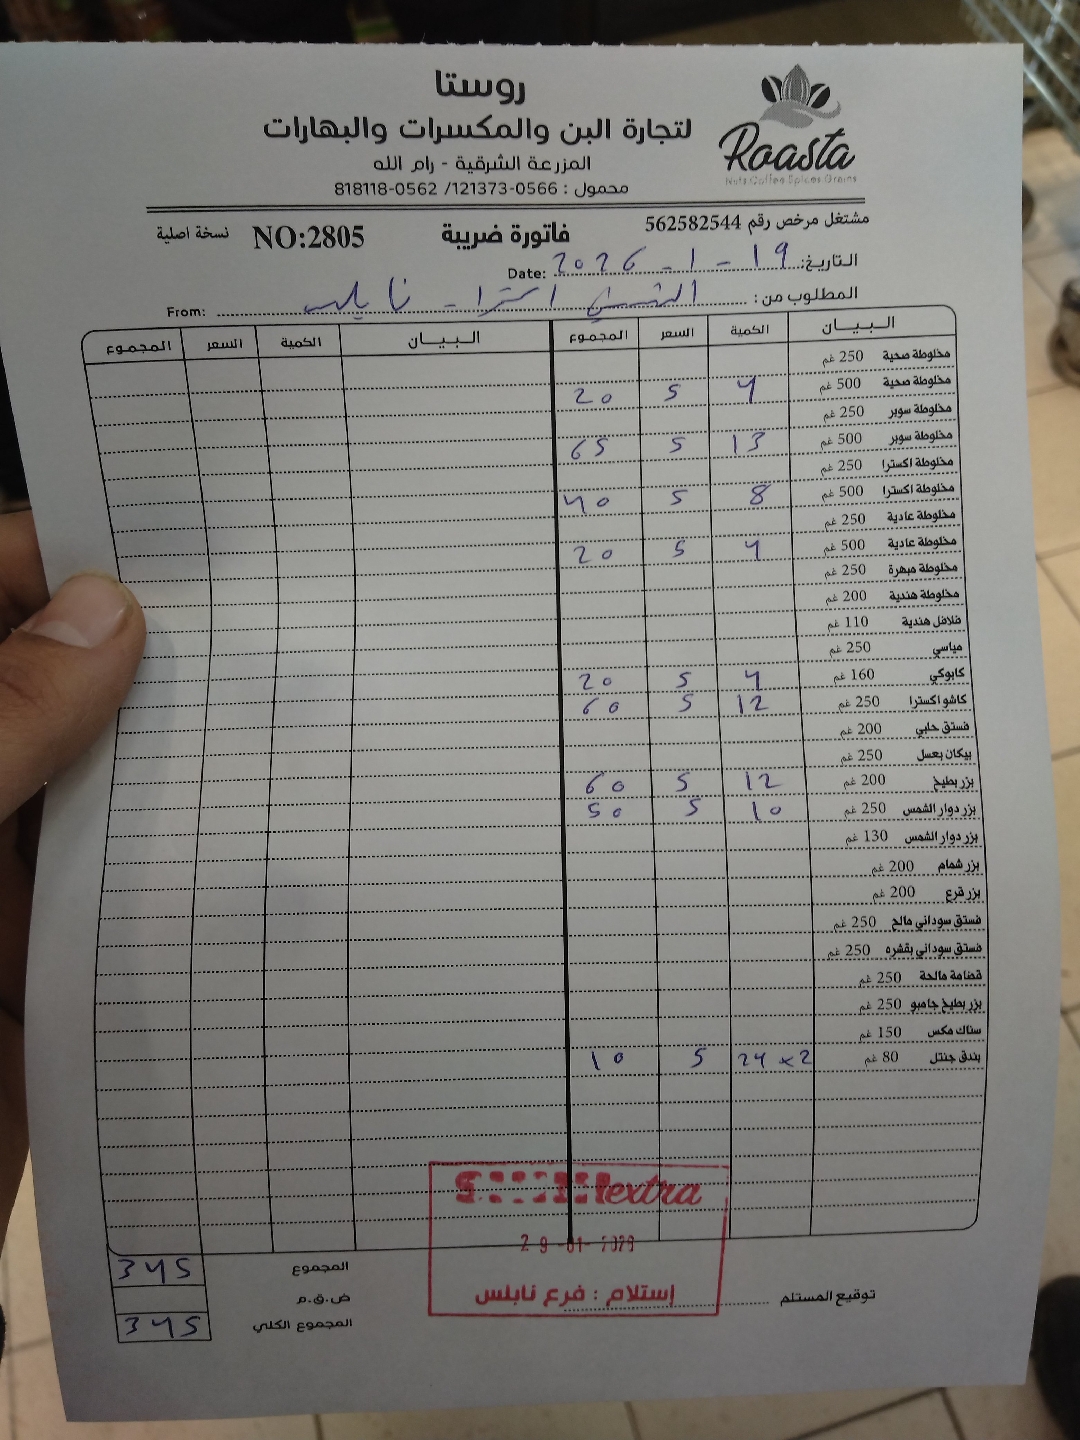 روستا
لتجارة البن والمكسرات والبهارات
المزرعة الشرقية - رام الله
محمول : 0566-121373/ 0562-818118
Roasta
Nuts Coffee Spices Grains
مشتغل مرخص رقم 562582544
فاتورة ضريبة
NO:2805
نسخة اصلية
التاريخ: 19 - 1 - 2026 Date:
المطلوب من : الشني اكسترا - نابلس From:
البيـــان الكمية السعر المجموع البيـــان الكمية السعر المجموع
مخلوطة صحية 250 غم
مخلوطة صحية 500 غم 4 5 20
مخلوطة سوبر 250 غم
مخلوطة سوبر 500 غم 13 5 65
مخلوطة اكسترا 250 غم
مخلوطة اكسترا 500 غم 8 5 40
مخلوطة عادية 250 غم
مخلوطة عادية 500 غم 4 5 20
مخلوطة مبهرة 250 غم
مخلوطة هندية 200 غم
فلافل هندية 110 غم
مياسي 250 غم
كابوكي 160 غم 4 5 20
كاشو اكسترا 250 غم 12 5 60
فستق حلبي 200 غم
بيكان بعسل 250 غم
بزر بطيخ 200 غم 12 5 60
بزر دوار الشمس 250 غم 10 5 50
بزر دوار الشمس 130 غم
بزر شمام 200 غم
بزر قرع 200 غم
فستق سوداني مالح 250 غم
فستق سوداني بقشره 250 غم
قضامة مالحة 250 غم
بزر بطيخ جامبو 250 غم
سناك مكس 150 غم
بندق جنتل 80 غم 24 x 2 5 10
extra
إستلام : فرع نابلس
المجموع 345
ض.ق.م
المجموع الكلي 345
توقيع المستلم